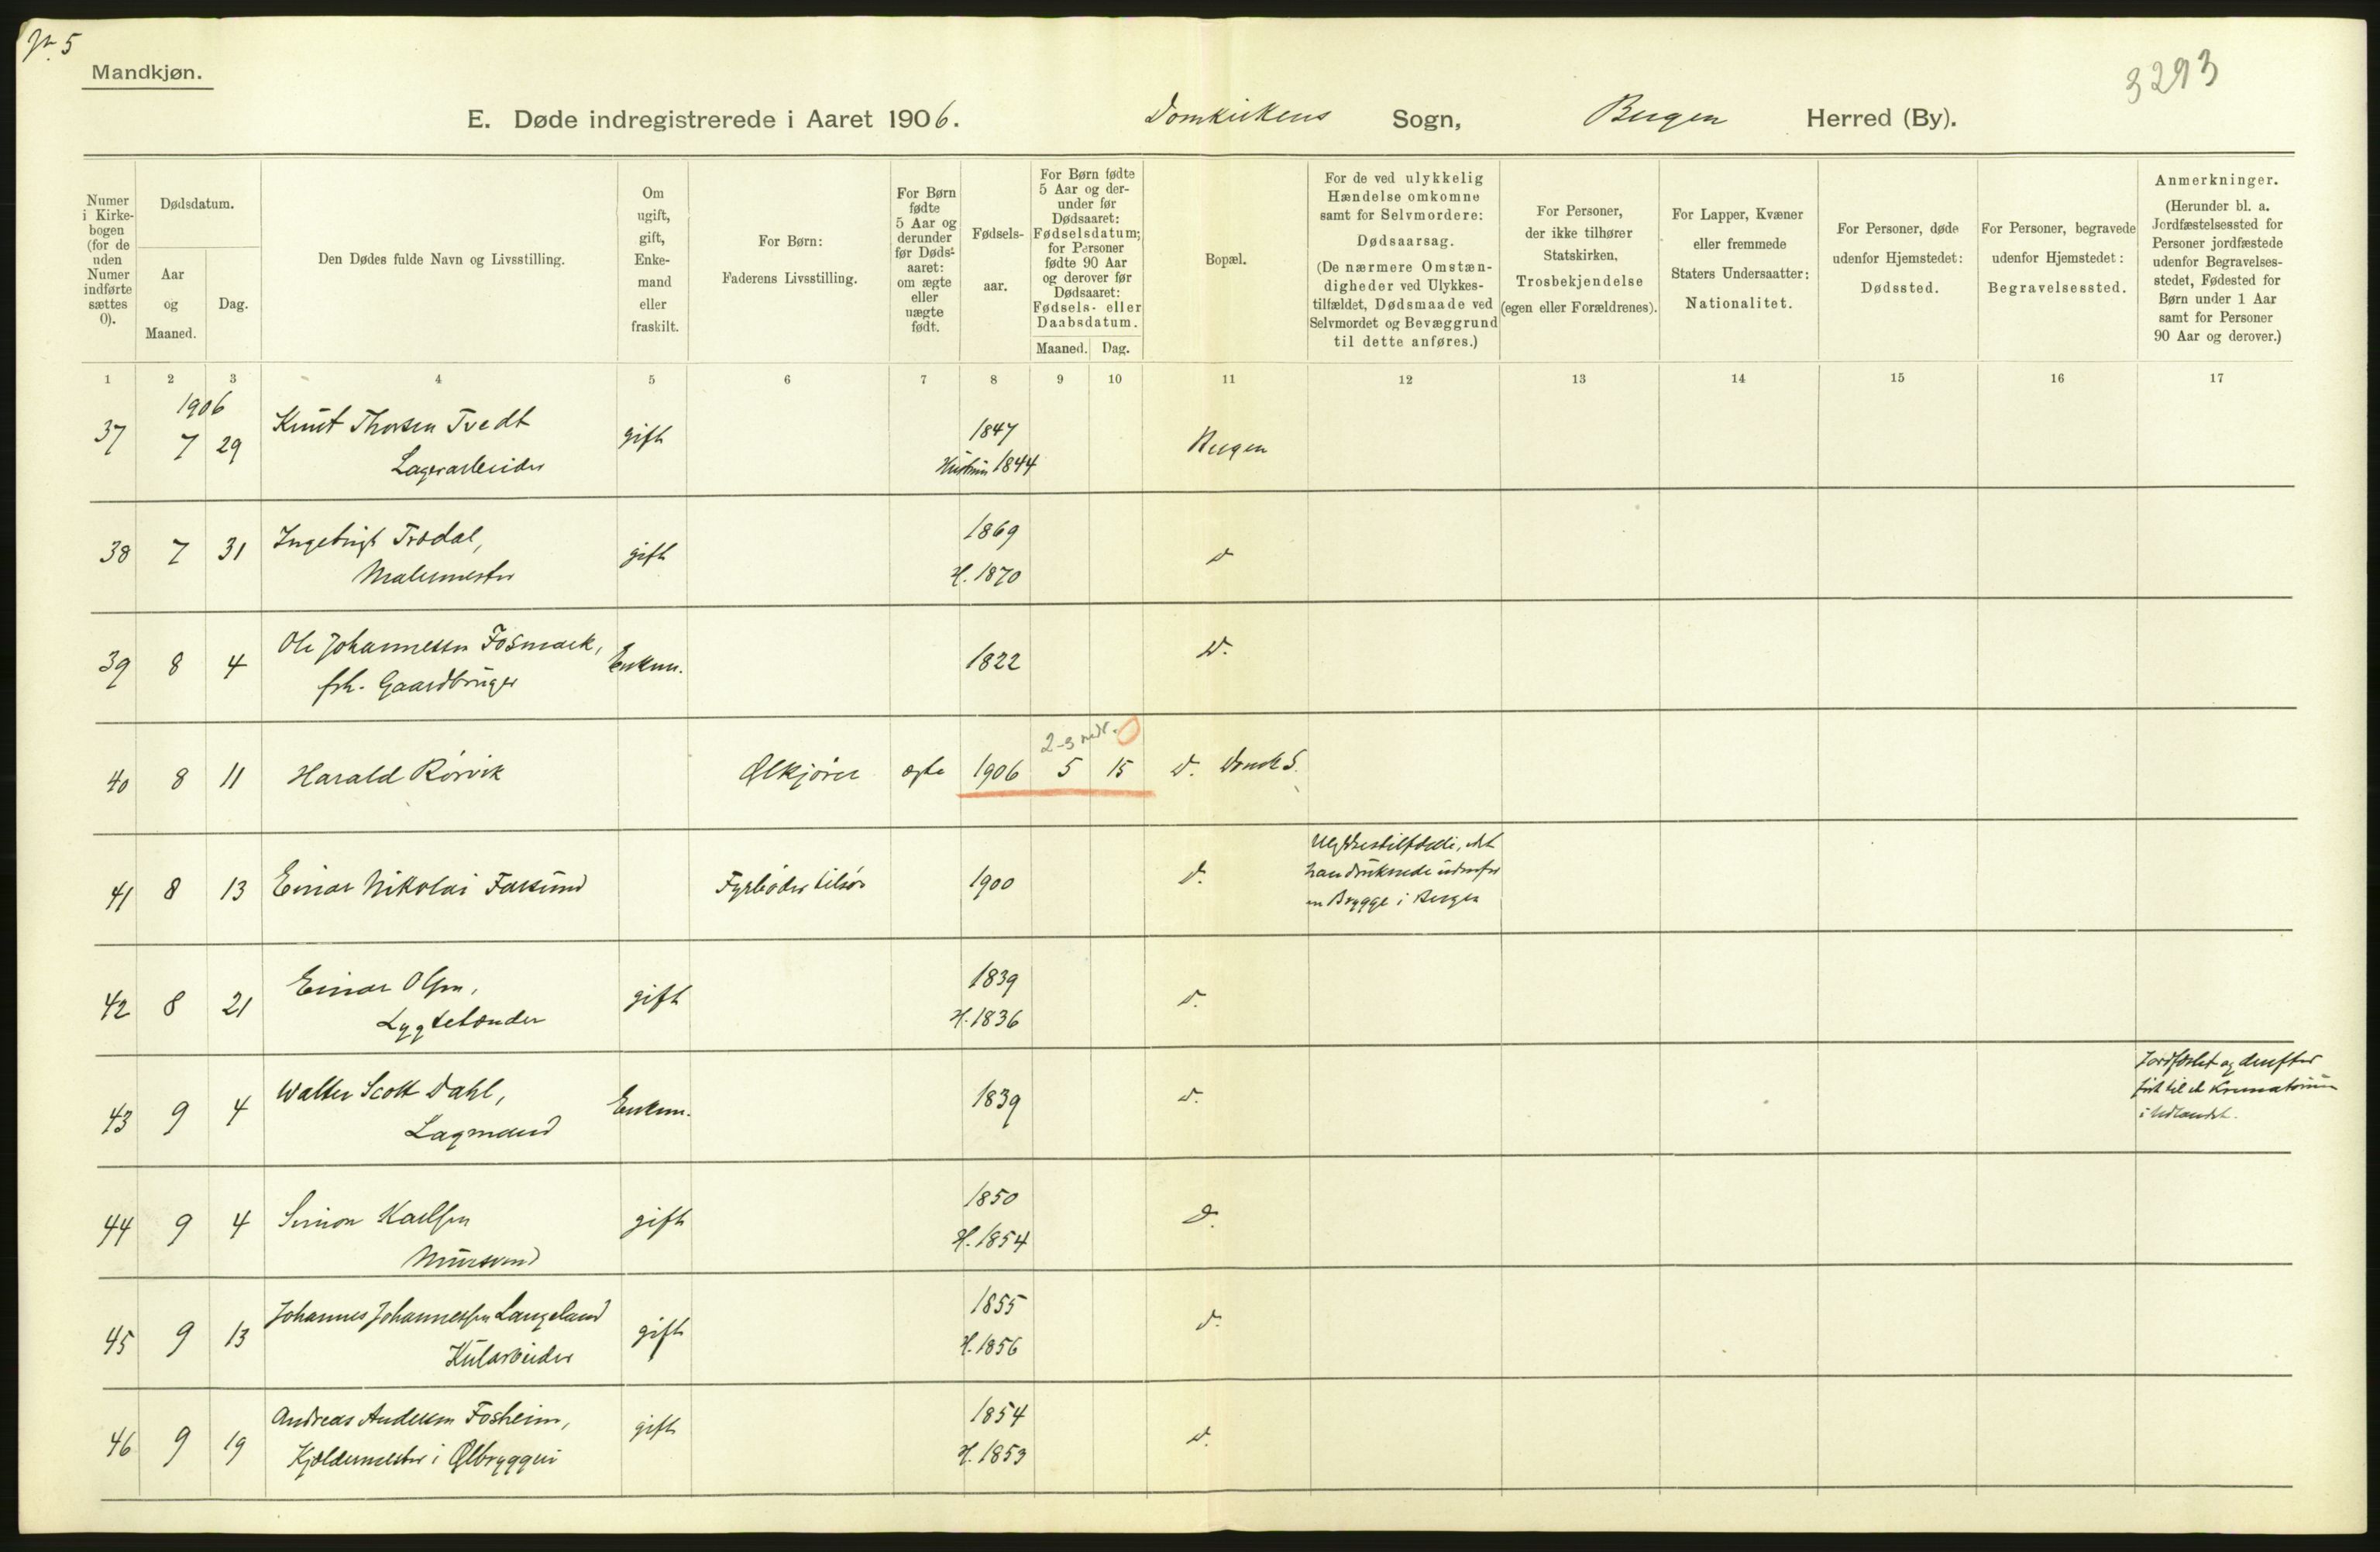 № 5
Mandkjøn.
3293
E. Døde indregistrerede i Aaret 1906.
Domkirkens Sogn,
Bergen Herred (By).
Numer i Kirkebogen (for de uden Numer indførte sættes 0).
Dødsdatum.
Aar og Maaned.
Dag.
Den Dødes fulde Navn og Livsstilling.
Om ugift, gift, Enkemand eller fraskilt.
For Børn: Faderens Livsstilling.
For Børn fødte 5 Aar og derunder før Dødsaaret: om ægte eller uægte født.
Fødselsaar.
For Børn fødte 5 Aar og derunder før Dødsaaret: Fødselsdatum; for Personer fødte 90 Aar og derover før Dødsaaret: Fødsels- eller Daabsdatum.
Maaned. Dag.
Bopæl.
For de ved ulykkelig Hændelse omkomne samt for Selvmordere: Dødsaarsag. (De nærmere Omstændigheder ved Ulykkestilfældet, Dødsmaade ved Selvmordet og Bevæggrund til dette anføres.)
For Personer, der ikke tilhører Statskirken, Trosbekjendelse (egen eller Forældrenes).
For Lapper, Kvæner eller fremmede Staters Undersaatter: Nationalitet.
For Personer, døde udenfor Hjemstedet: Dødssted.
For Personer, begravede udenfor Hjemstedet: Begravelsessted.
Anmerkninger. (Herunder bl. a. Jordfæstelsessted for Personer jordfæstede udenfor Begravelsesstedet, Fødested for Børn under 1 Aar samt for Personer 90 Aar og derover.)
1 2 3 4 5 6 7 8 9 10 11 12 13 14 15 16 17
1906
37 7 29 Knut Thorsen Tvedt gift 1847 Bergen
Lagerarbeider Hustru 1844
38 7 31 Ingebrigt Trædal, gift 1869 d
Malermester H. 1870
39 8 4 Ole Johannessen Fosmark, Enkem. 1822 D.
fhv. Gaardbruger
2-3 mdr. 0
40 8 11 Harald Rørvik Ølkjører ægte 1906 5 15 D. Domk S.
41 8 13 Einar Nikolai Farsund Fyrbøder tilsøs 1900 d.
Ulykkestilfælde, idet
han druknede udenfor
en Brygge i Bergen
42 8 21 Einar Olsen, gift 1839 d.
Lygtetænder H. 1836
43 9 4 Walter Scott Dahl, Enkem. 1839 d.
Lagmand
Jordfæstet og derefter
ført til et Krematorium
i Udlandet.
44 9 4 Simon Karlsen gift 1850 d.
Murersvend H. 1854
45 9 13 Johannes Johannessen Langeland gift 1855 d.
Kularbeider H. 1856
46 9 19 Andreas Andersen Fosheim, gift 1854 d.
Kjældermester i Ølbryggeri H. 1853